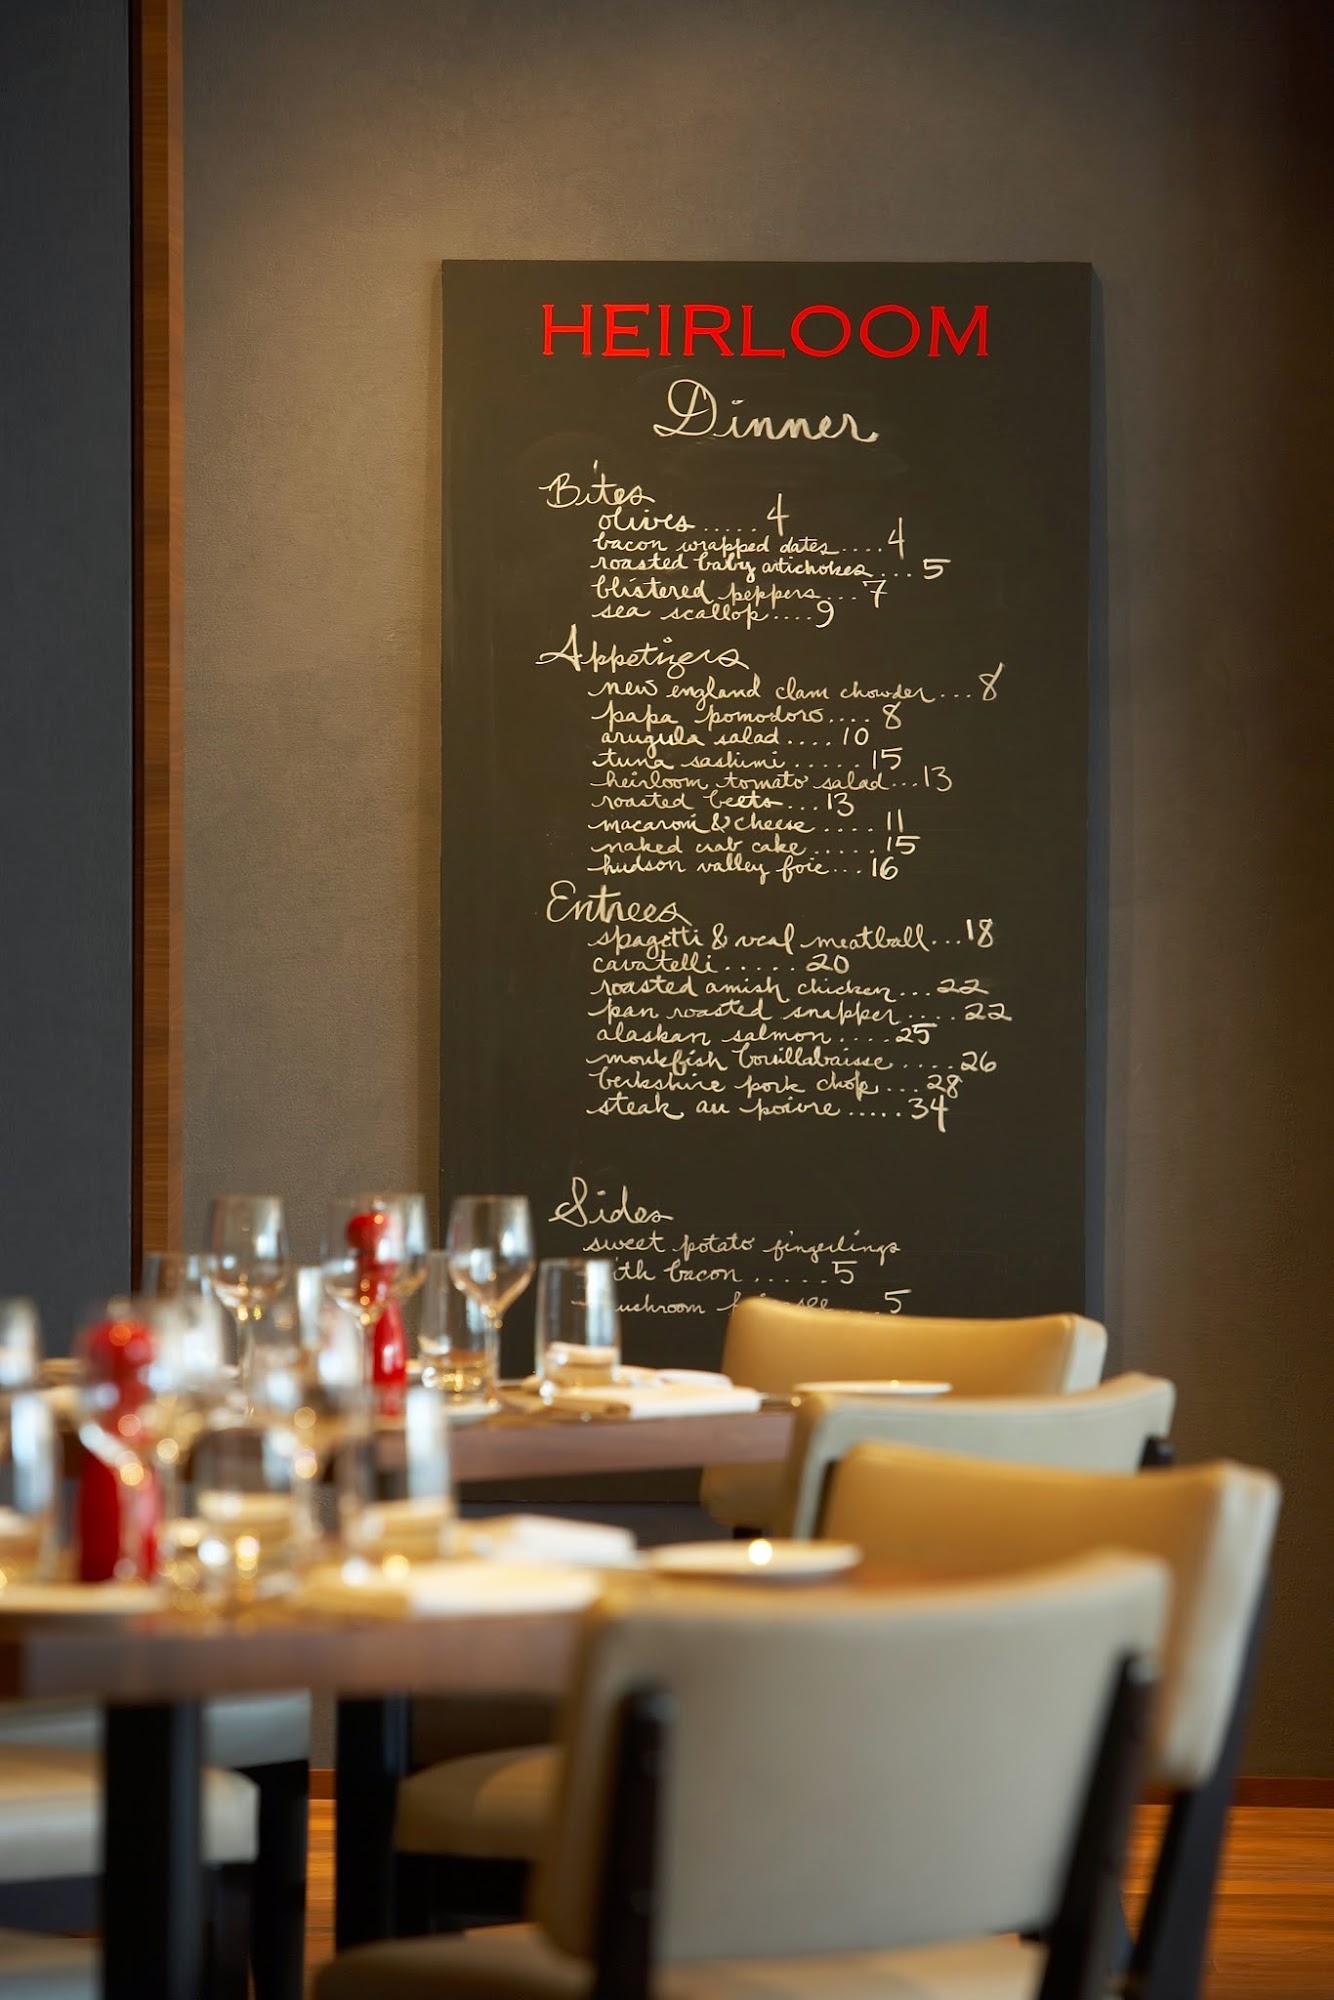 HEIRLOOM
Dinner
Bites
olives.....4
bacon wrapped dates....4
roasted baby artichokes...5
blistered peppers...7
sea scallop....9
Appetizers
new england clam chowder...8
papa pomodoro....8
arugula salad....10
tuna sashimi......15
heirloom tomato salad...13
roasted beets...13
macaroni & cheese....11
naked crab cake.....15
hudson valley foie...16
Entrees
spagetti & veal meatball...18
cavatelli.....20
roasted amish chicken...22
pan roasted snapper....22
alaskan salmon....25
monkfish bouillabaisse.....26
berkshire pork chop...28
steak au poivre.....34
Sides
sweet potato fingerlings
ith bacon.....5
ushroom 5